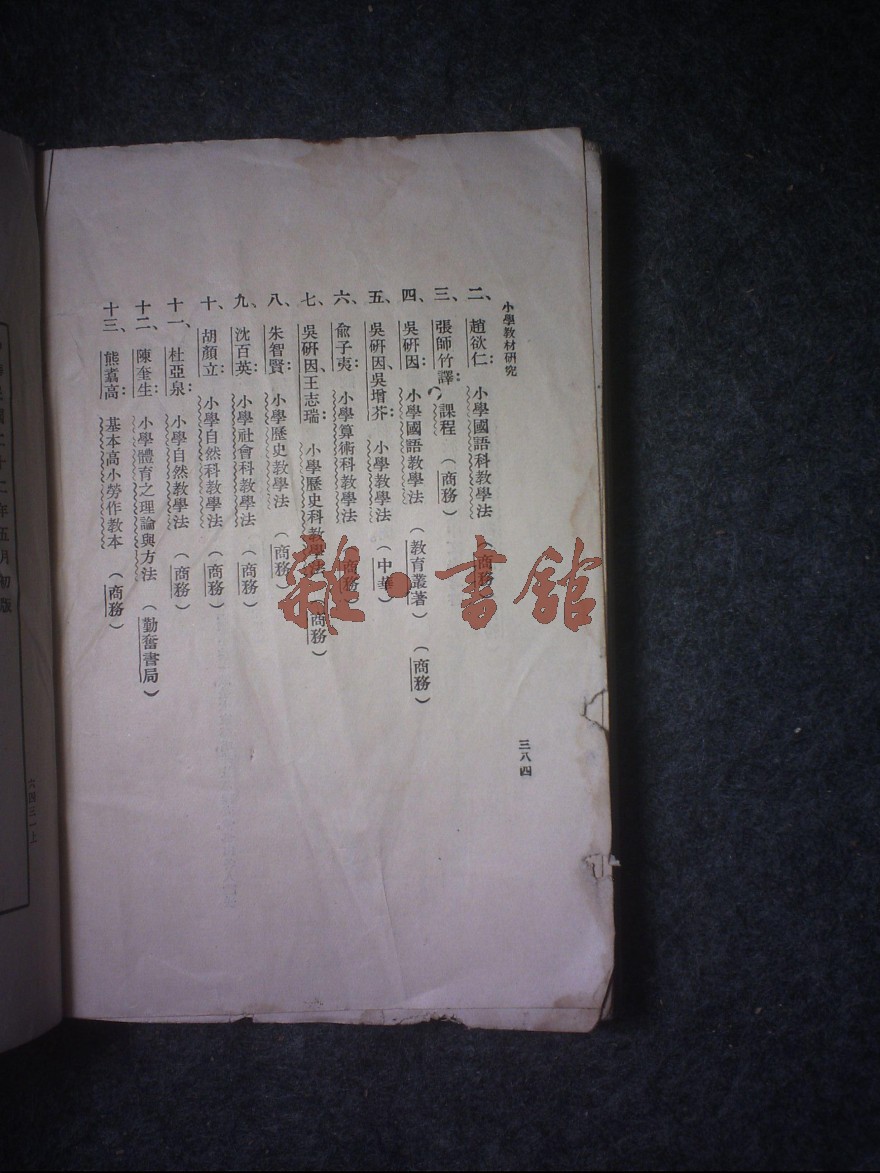 小學教材研究
三八四
二、趙欲仁：小學國語科教學法（商務）
三、張師竹譯：課程（商務）
四、吳研因：小學國語教學法（教育叢著）（商務）
五、吳研因、吳增芥：小學教學法（中華）
六、俞子夷：小學算術科教學法（商務）
七、吳研因、王志瑞：小學歷史科教學法（商務）
八、朱智賢：小學歷史教學法（商務）
九、沈百英：小學社會科教學法（商務）
十、胡顏立：小學自然科教學法（商務）
十一、杜亞泉：小學自然教學法（商務）
十二、陳奎生：小學體育之理論與方法（勤奮書局）
十三、熊翥高：基本高小勞作教本（商務）
雜·書館
國二十二年五月初版